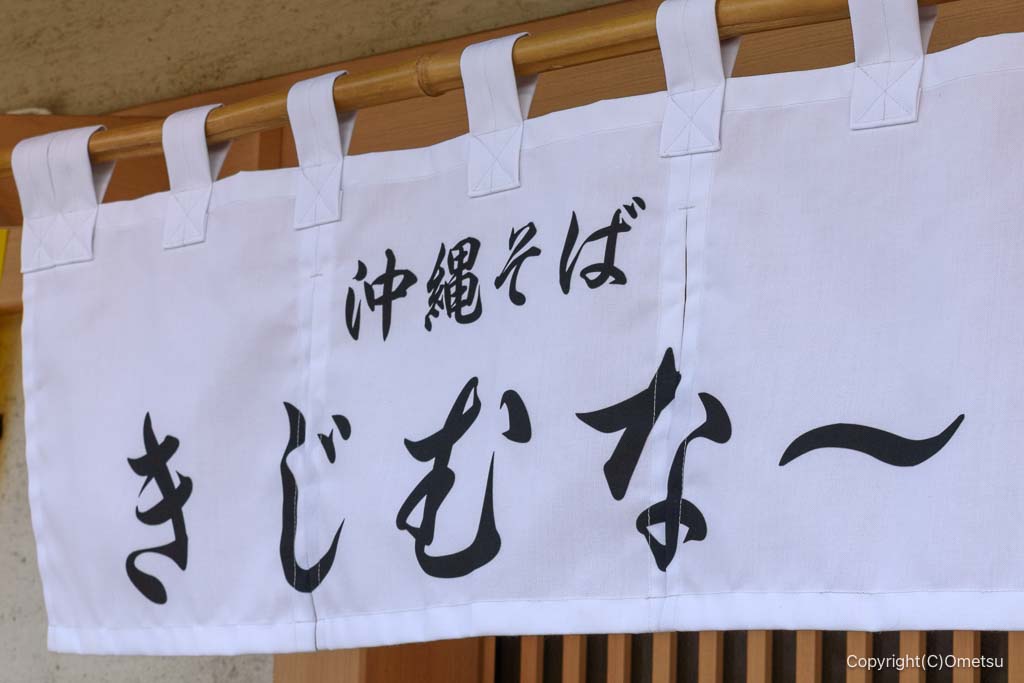 沖縄そば
きじむな〜
Copyright(C)Ometsu